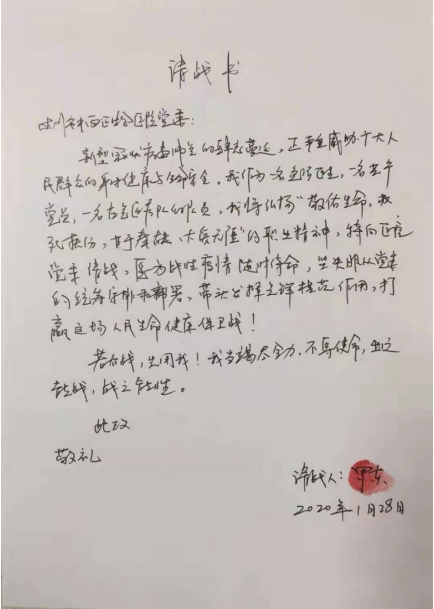 请战书
医院党委：
新型冠状病毒肺炎的肆虐蔓延，正严重威胁广大人
民群众的身体健康与生命安全。我作为一名急诊医生，一名共产
党员，一名医疗队的队员，我将弘扬“敬佑生命，救
死扶伤，甘于奉献，大爱无疆”的职业精神，特向医院
党委请战，随时待命，坚决服从党委
的统筹安排和部署，带头发挥先锋模范作用，打
赢这场人民生命健康保卫战！
若有战，必用我！我当竭尽全力，不辱使命，
能战，战之能胜。
此致
敬礼
请战人：
2020年1月28日